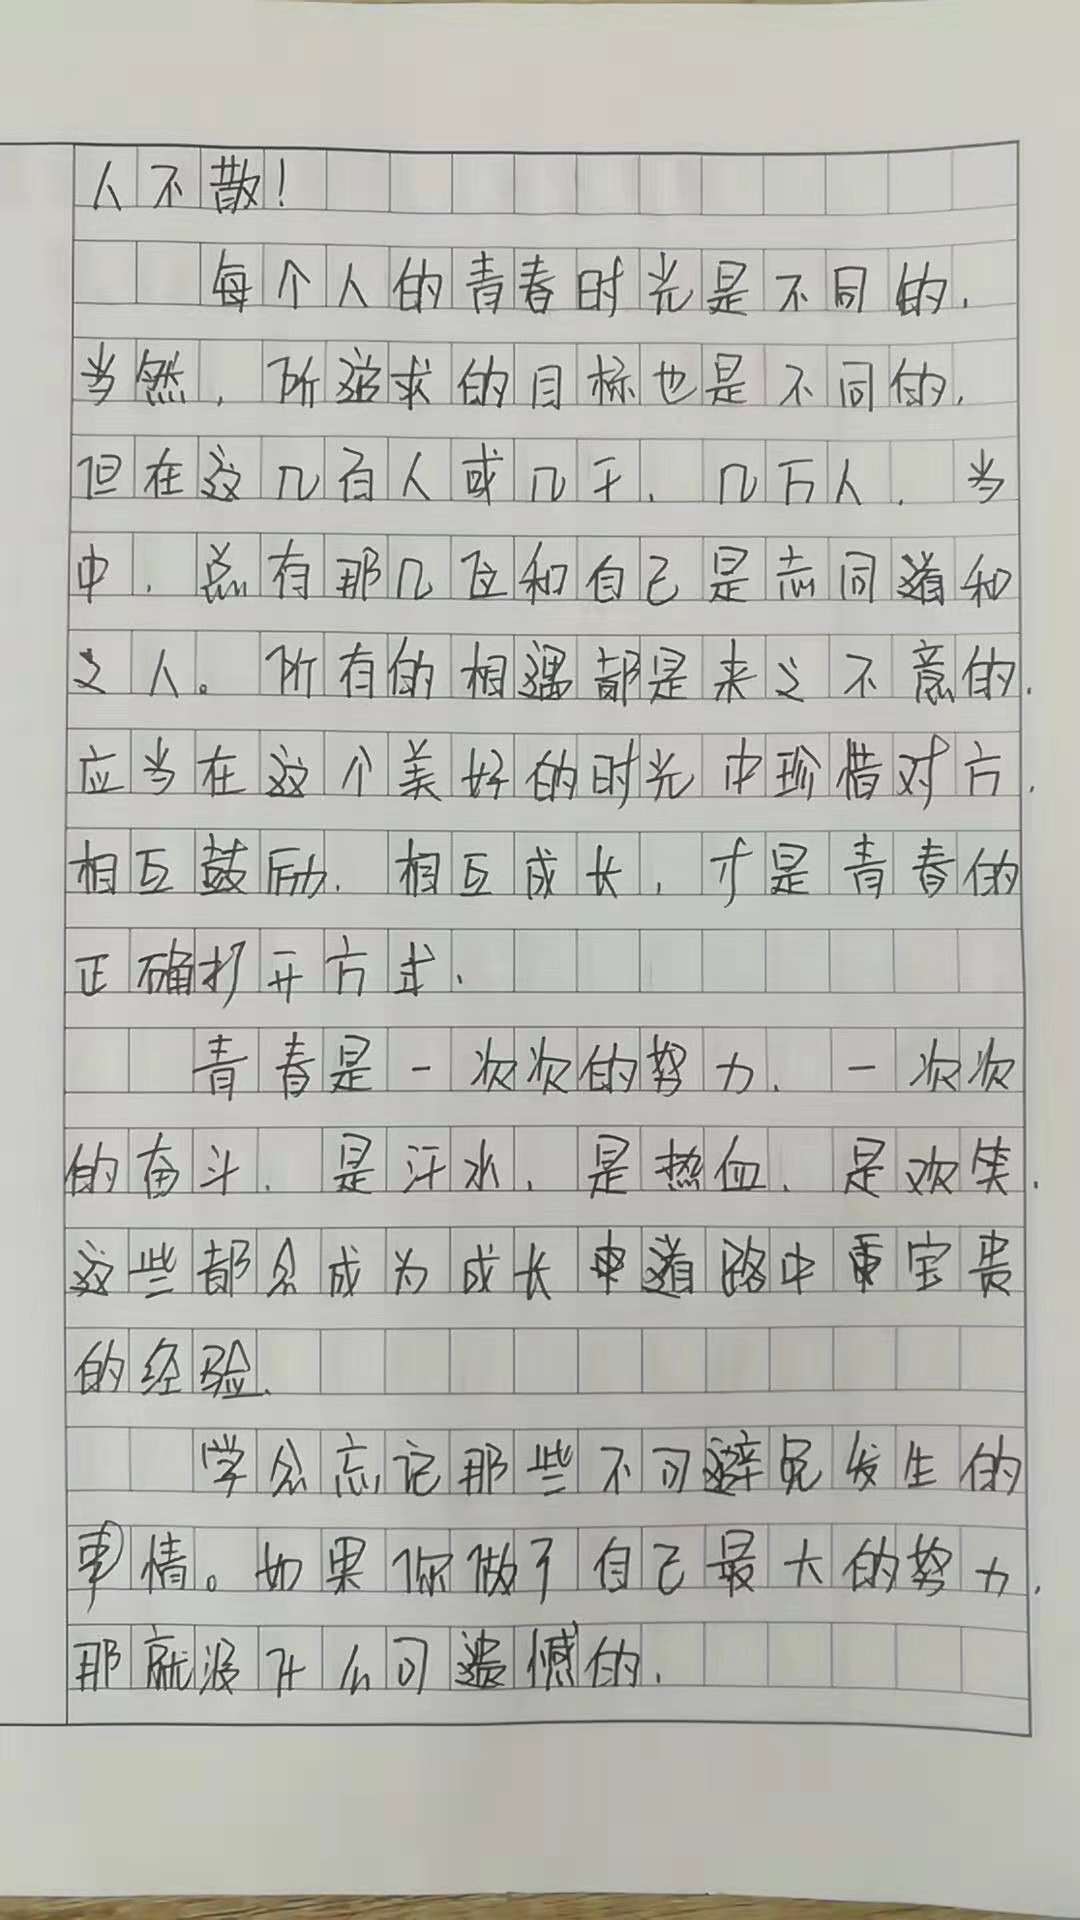 人不散！
每个人的青春时光是不同的，
当然，所追求的目标也是不同的，
但在这几百人或几千、几万人，当
中，总有那几位和自己是志同道和
之人。所有的相遇都是来之不意的，
应当在这个美好的时光中珍惜对方，
相互鼓励，相互成长，才是青春的
正确打开方式，
青春是一次次的努力，一次次
的奋斗，是汗水，是热血，是欢笑，
这些都会成为成长中道路中重宝贵
的经验，
学会忘记那些不可避免发生的
事情。如果你做了自己最大的努力，
那就没什么可遗憾的，